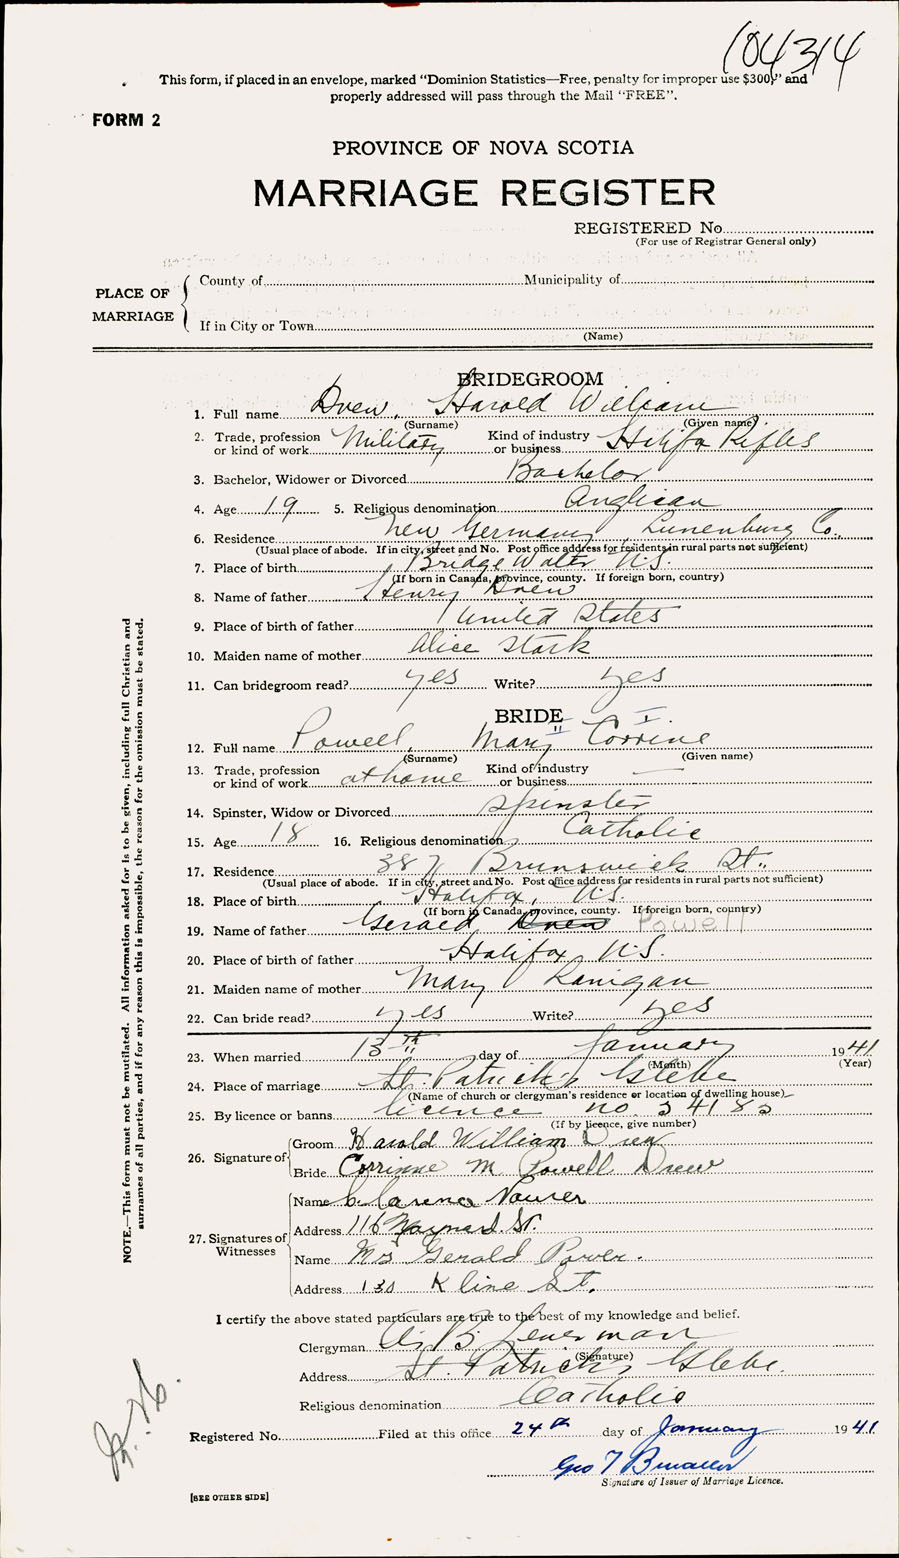 104314
This form, if placed in an envelope, marked "Dominion Statistics—Free, penalty for improper use $300," and
properly addressed will pass through the Mail "FREE".
FORM 2
PROVINCE OF NOVA SCOTIA
MARRIAGE REGISTER
REGISTERED No.
(For use of Registrar General only)
PLACE OF MARRIAGE
County of Municipality of
If in City or Town
(Name)
BRIDEGROOM
1. Full name Drew, Harold William
(Surname) (Given name)
2. Trade, profession or kind of work Military Kind of industry or business Halifax Rifles
3. Bachelor, Widower or Divorced Bachelor
4. Age 19 5. Religious denomination Anglican
6. Residence New Germany, Lunenburg Co.
(Usual place of abode. If in city, street and No. Post office address for residents in rural parts not sufficient)
7. Place of birth Bridgewater N.S.
(If born in Canada, province, county. If foreign born, country)
8. Name of father Henry Drew
9. Place of birth of father United States
10. Maiden name of mother Alice Stark
11. Can bridegroom read? yes Write? yes
BRIDE
12. Full name Powell, Mary II Corrine I
(Surname) (Given name)
13. Trade, profession or kind of work at home Kind of industry or business —
14. Spinster, Widow or Divorced Spinster
15. Age 18 16. Religious denomination Catholic
17. Residence 387 Brunswick St.,
(Usual place of abode. If in city, street and No. Post office address for residents in rural parts not sufficient)
18. Place of birth Halifax, N.S.
(If born in Canada, province, county. If foreign born, country)
19. Name of father Gerald Drew Powell
20. Place of birth of father Halifax N.S.
21. Maiden name of mother Mary Lanigan
22. Can bride read? yes Write? yes
23. When married 13th day of January 1941
(Month) (Year)
24. Place of marriage St. Patrick's Glebe
(Name of church or clergyman's residence or location of dwelling house)
25. By licence or banns licence no.
(If by licence, give number)
26. Signature of
Groom Harold William Drew
Bride Corrinne M Powell Drew
27. Signatures of Witnesses
Name
Address 116 Maynard St.
Name Mrs Gerald Power.
Address 130 Kline St.
I certify the above stated particulars are true to the best of my knowledge and belief.
Clergyman
(Signature)
Address St. Patrick's Glebe.
Religious denomination Catholic
Registered No. Filed at this office 24th day of January 1941
Geo T
Signature of Issuer of Marriage Licence.
[SEE OTHER SIDE]
NOTE.—This form must not be mutilated. All information asked for is to be given, including full Christian and
surnames of all parties, and if for any reason this is impossible, the reason for the omission must be stated.